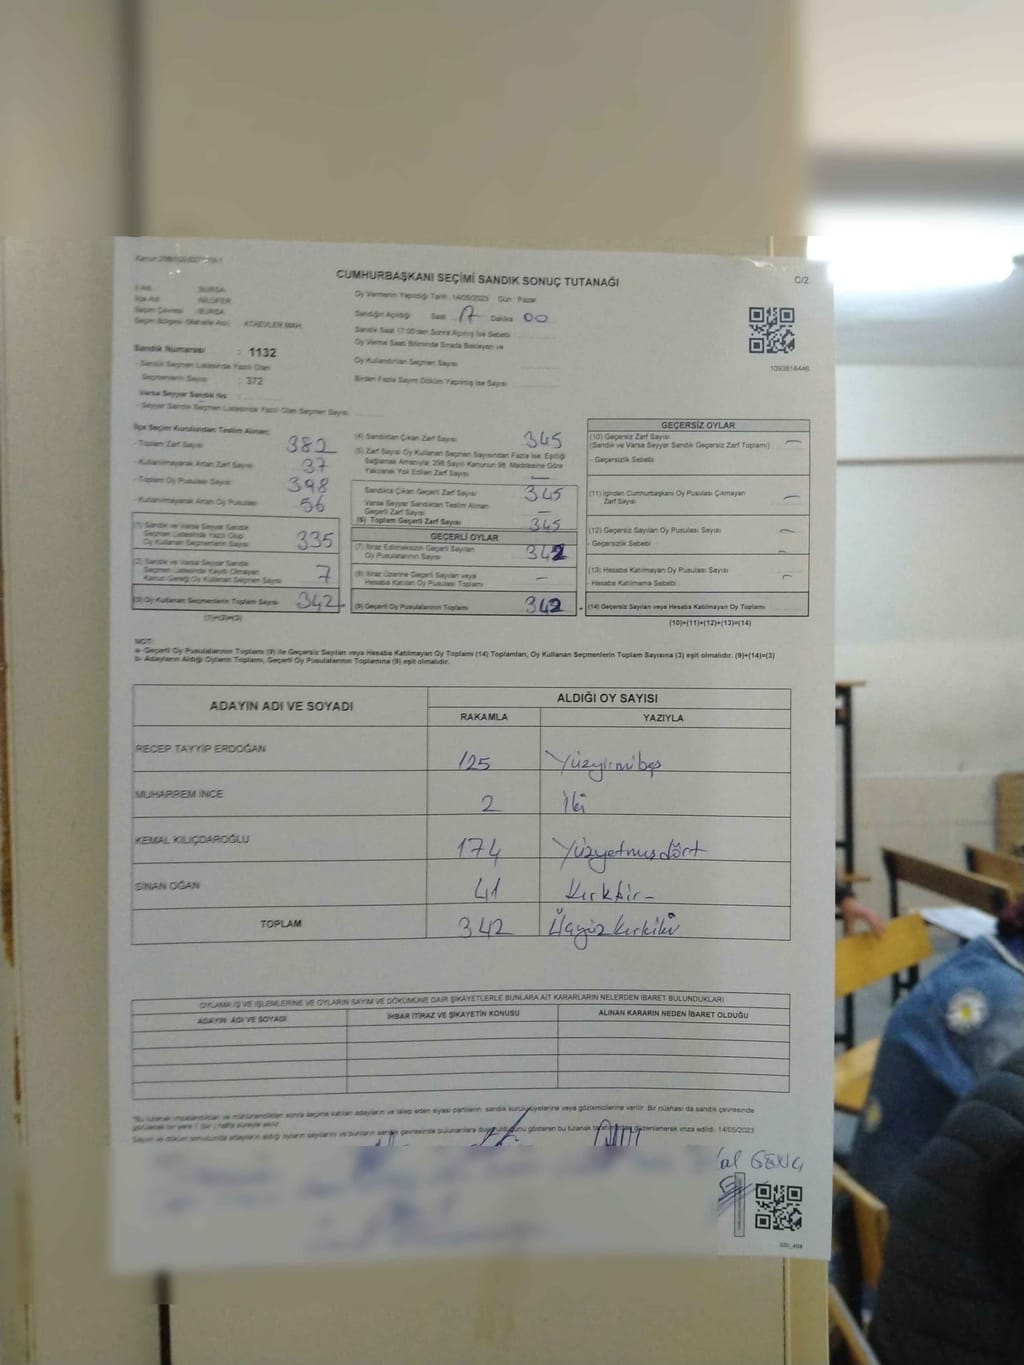 C/2
CUMHURBAŞKANI SEÇİMİ SANDIK SONUÇ TUTANAĞI
İl Adı : BURSA
İlçe Adı : NİLÜFER
Seçim Çevresi : BURSA
Seçim Bölgesi (Mahalle Adı) : ATAEVLER MAH.
Sandık Numarası : 1132
- Sandık Seçmen Listesinde Yazılı Olan
Seçmenlerin Sayısı : 372
Varsa Seyyar Sandık No :
- Seyyar Sandık Seçmen Listesinde Yazılı Olan Seçmen Sayısı
Oy Vermenin Yapıldığı Tarih : 14/05/2023 Gün : Pazar
Sandığın Açıldığı Saat 17 Dakika 00
Sandık Saat 17:00'den Sonra Açılmış İse Sebebi
Oy Verme Saati Bitiminde Sırada Bekleyen ve
Oy Kullandırılan Seçmen Sayısı
Birden Fazla Sayım Döküm Yapılmış İse Sayısı
1093818446
İlçe Seçim Kurulundan Teslim Alınan:
- Toplam Zarf Sayısı 382
- Kullanılmayarak Artan Zarf Sayısı 37
- Toplam Oy Pusulası 398
- Kullanılmayarak Artan Oy Pusulası 56
(1) Sandık ve Varsa Seyyar Sandık
Seçmen Listesinde Yazılı Olup
Oy Kullanan Seçmenlerin Sayısı 335
(2) Sandık ve Varsa Seyyar Sandık
Seçmen Listesinde Kaydı Olmayan
Kanun Gereği Oy Kullanan Seçmen Sayısı 7
(3) Oy Kullanan Seçmenlerin Toplam Sayısı 342
(1)+(2)=(3)
(4) Sandıktan Çıkan Zarf Sayısı 345
(5) Zarf Sayısı Oy Kullanan Seçmen Sayısından Fazla İse, Eşitliği
Sağlamak Amacıyla, 298 Sayılı Kanunun 98. Maddesine Göre
Yakılarak Yok Edilen Zarf Sayısı —
Sandıkta Çıkan Geçerli Zarf Sayısı 345
Varsa Seyyar Sandıktan Teslim Alınan
Geçerli Zarf Sayısı —
(6) Toplam Geçerli Zarf Sayısı 345
GEÇERLİ OYLAR
(7) İtiraz Edilmeksizin Geçerli Sayılan
Oy Pusulalarının Sayısı 342
(8) İtiraz Üzerine Geçerli Sayılan veya
Hesaba Katılan Oy Pusulası Toplamı —
(9) Geçerli Oy Pusulalarının Toplamı 342
GEÇERSİZ OYLAR
(10) Geçersiz Zarf Sayısı
(Sandık ve Varsa Seyyar Sandık Geçersiz Zarf Toplamı) —
- Geçersizlik Sebebi
(11) İçinden Cumhurbaşkanı Oy Pusulası Çıkmayan
Zarf Sayısı —
(12) Geçersiz Sayılan Oy Pusulası Sayısı —
- Geçersizlik Sebebi —
(13) Hesaba Katılmayan Oy Pusulası Sayısı
- Hesaba Katılmama Sebebi —
(14) Geçersiz Sayılan veya Hesaba Katılmayan Oy Toplamı
(10)+(11)+(12)+(13)=(14)
NOT:
a- Geçerli Oy Pusulalarının Toplamı (9) ile Geçersiz Sayılan veya Hesaba Katılmayan Oy Toplamı (14) Toplamları, Oy Kullanan Seçmenlerin Toplam Sayısına (3) eşit olmalıdır. (9)+(14)=(3)
b- Adayların Aldığı Oyların Toplamı, Geçerli Oy Pusulalarının Toplamına (9) eşit olmalıdır.
ADAYIN ADI VE SOYADI ALDIĞI OY SAYISI
RAKAMLA YAZIYLA
RECEP TAYYİP ERDOĞAN 125 Yüzyirmibeş
MUHARREM İNCE 2 İki
KEMAL KILIÇDAROĞLU 174 Yüzyetmişdört
SİNAN OĞAN 41 Kırkbir
TOPLAM 342 Üçyüzkırkiki
OYLAMA İŞ VE İŞLEMLERİNE VE OYLARIN SAYIM VE DÖKÜMÜNE DAİR ŞİKAYETLERLE BUNLARA AİT KARARLARIN NELERDEN İBARET BULUNDUKLARI
ADAYIN ADI VE SOYADI İHBAR İTİRAZ VE ŞİKAYETİN KONUSU ALINAN KARARIN NEDEN İBARET OLDUĞU
*Bu tutanak imzalandıktan ve mühürlendikten sonra seçime katılan adayların ve talep eden siyasi partilerin sandık kurulu üyelerine veya gözlemcilerine verilir. Bir nüshası da sandık çevresinde
görülecek bir yere 1 (bir) hafta süreyle asılır.
Sayım ve döküm sonucunda adayların aldığı oyların sayılarını ve bunların sandık çevresinde bulunanlara duyurulduğunu gösteren bu tutanak düzenlenerek imza edildi. 14/05/2023
GENÇ